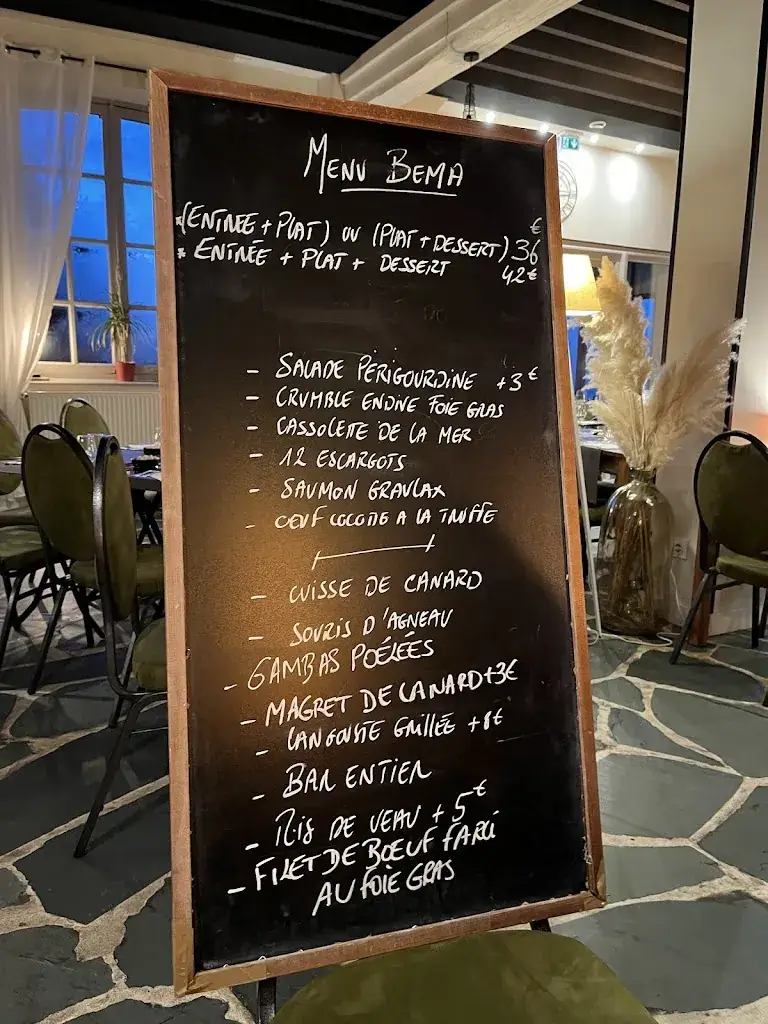 MENU BEMA
*(ENTRÉE + PLAT) OU (PLAT + DESSERT) 36 €
* ENTRÉE + PLAT + DESSERT 42 €
- SALADE PÉRIGOURDINE +3 €
- CRUMBLE ENDIVE FOIE GRAS
- CASSOLETTE DE LA MER
- 12 ESCARGOTS
- SAUMON GRAVLAX
- OEUF COCOTTE A LA TRUFFE
- CUISSE DE CANARD
- SOURIS D'AGNEAU
- GAMBAS POÉLÉES
- MAGRET DE CANARD +3€
- LANGOUSTE GRILLÉE +8€
- BAR ENTIER
- RIS DE VEAU + 5 €
- FILET DE BOEUF FARCI
AU FOIE GRAS